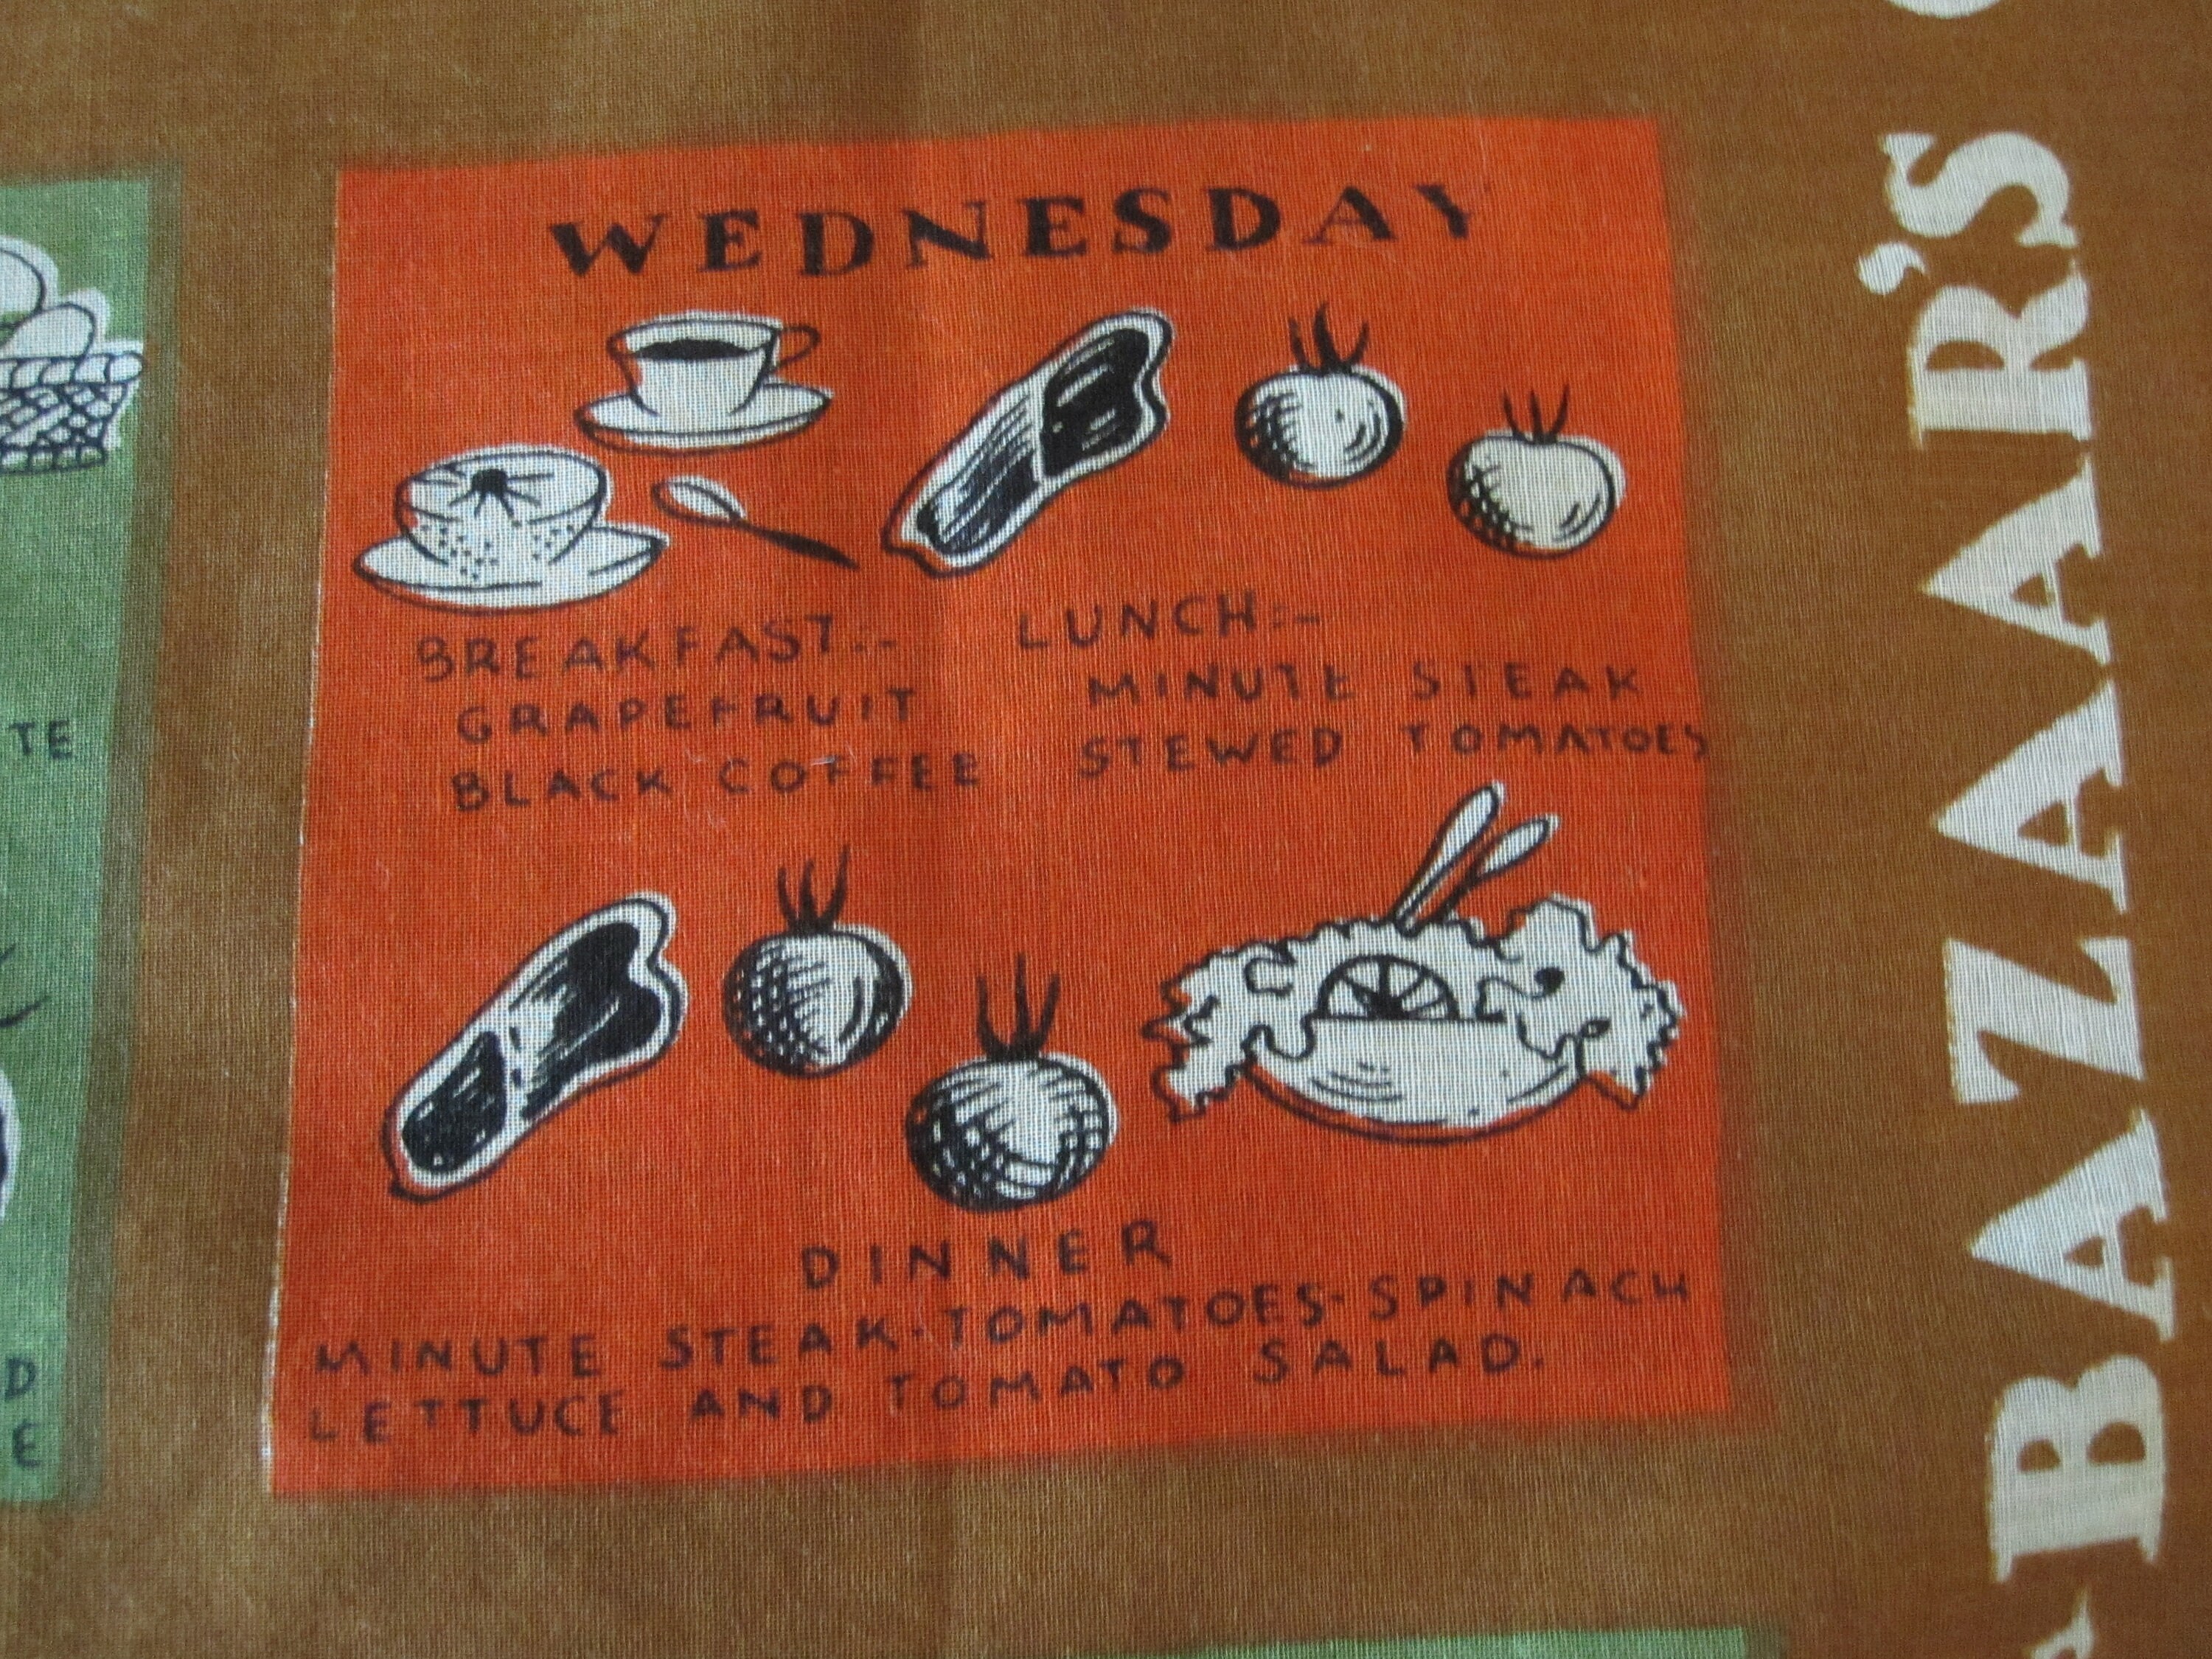 WEDNESDAY
BREAKFAST:-
GRAPEFRUIT
BLACK COFFEE
LUNCH:-
MINUTE STEAK
STEWED TOMATOES
DINNER
MINUTE STEAK·TOMATOES·SPINACH
LETTUCE AND TOMATO SALAD.
BAZAAR'S
TE
D
E